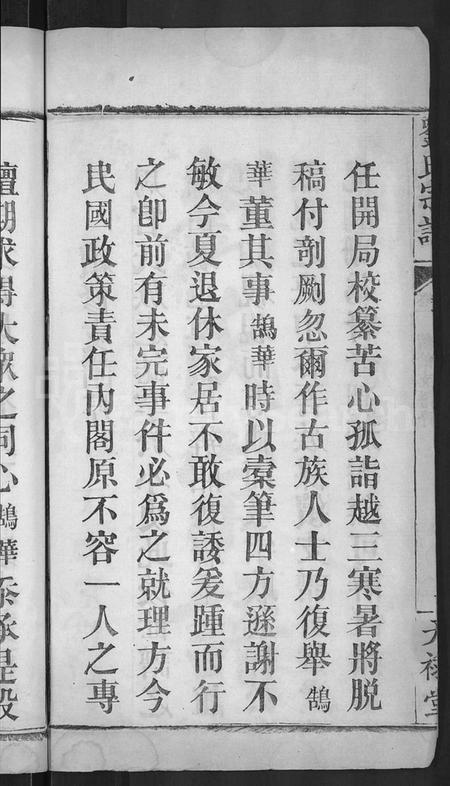 任開局校纂苦心孤詣越三寒暑將脫
稿付剞劂忽爾作古族人士乃復舉鵠
華董其事鵠華時以橐筆四方遜謝不
敏今夏退休家居不敢復諉爰踵而行
之卽前有未完事件必爲之就理方今
民國政策責任內閣原不容一人之專
之同心鵠華